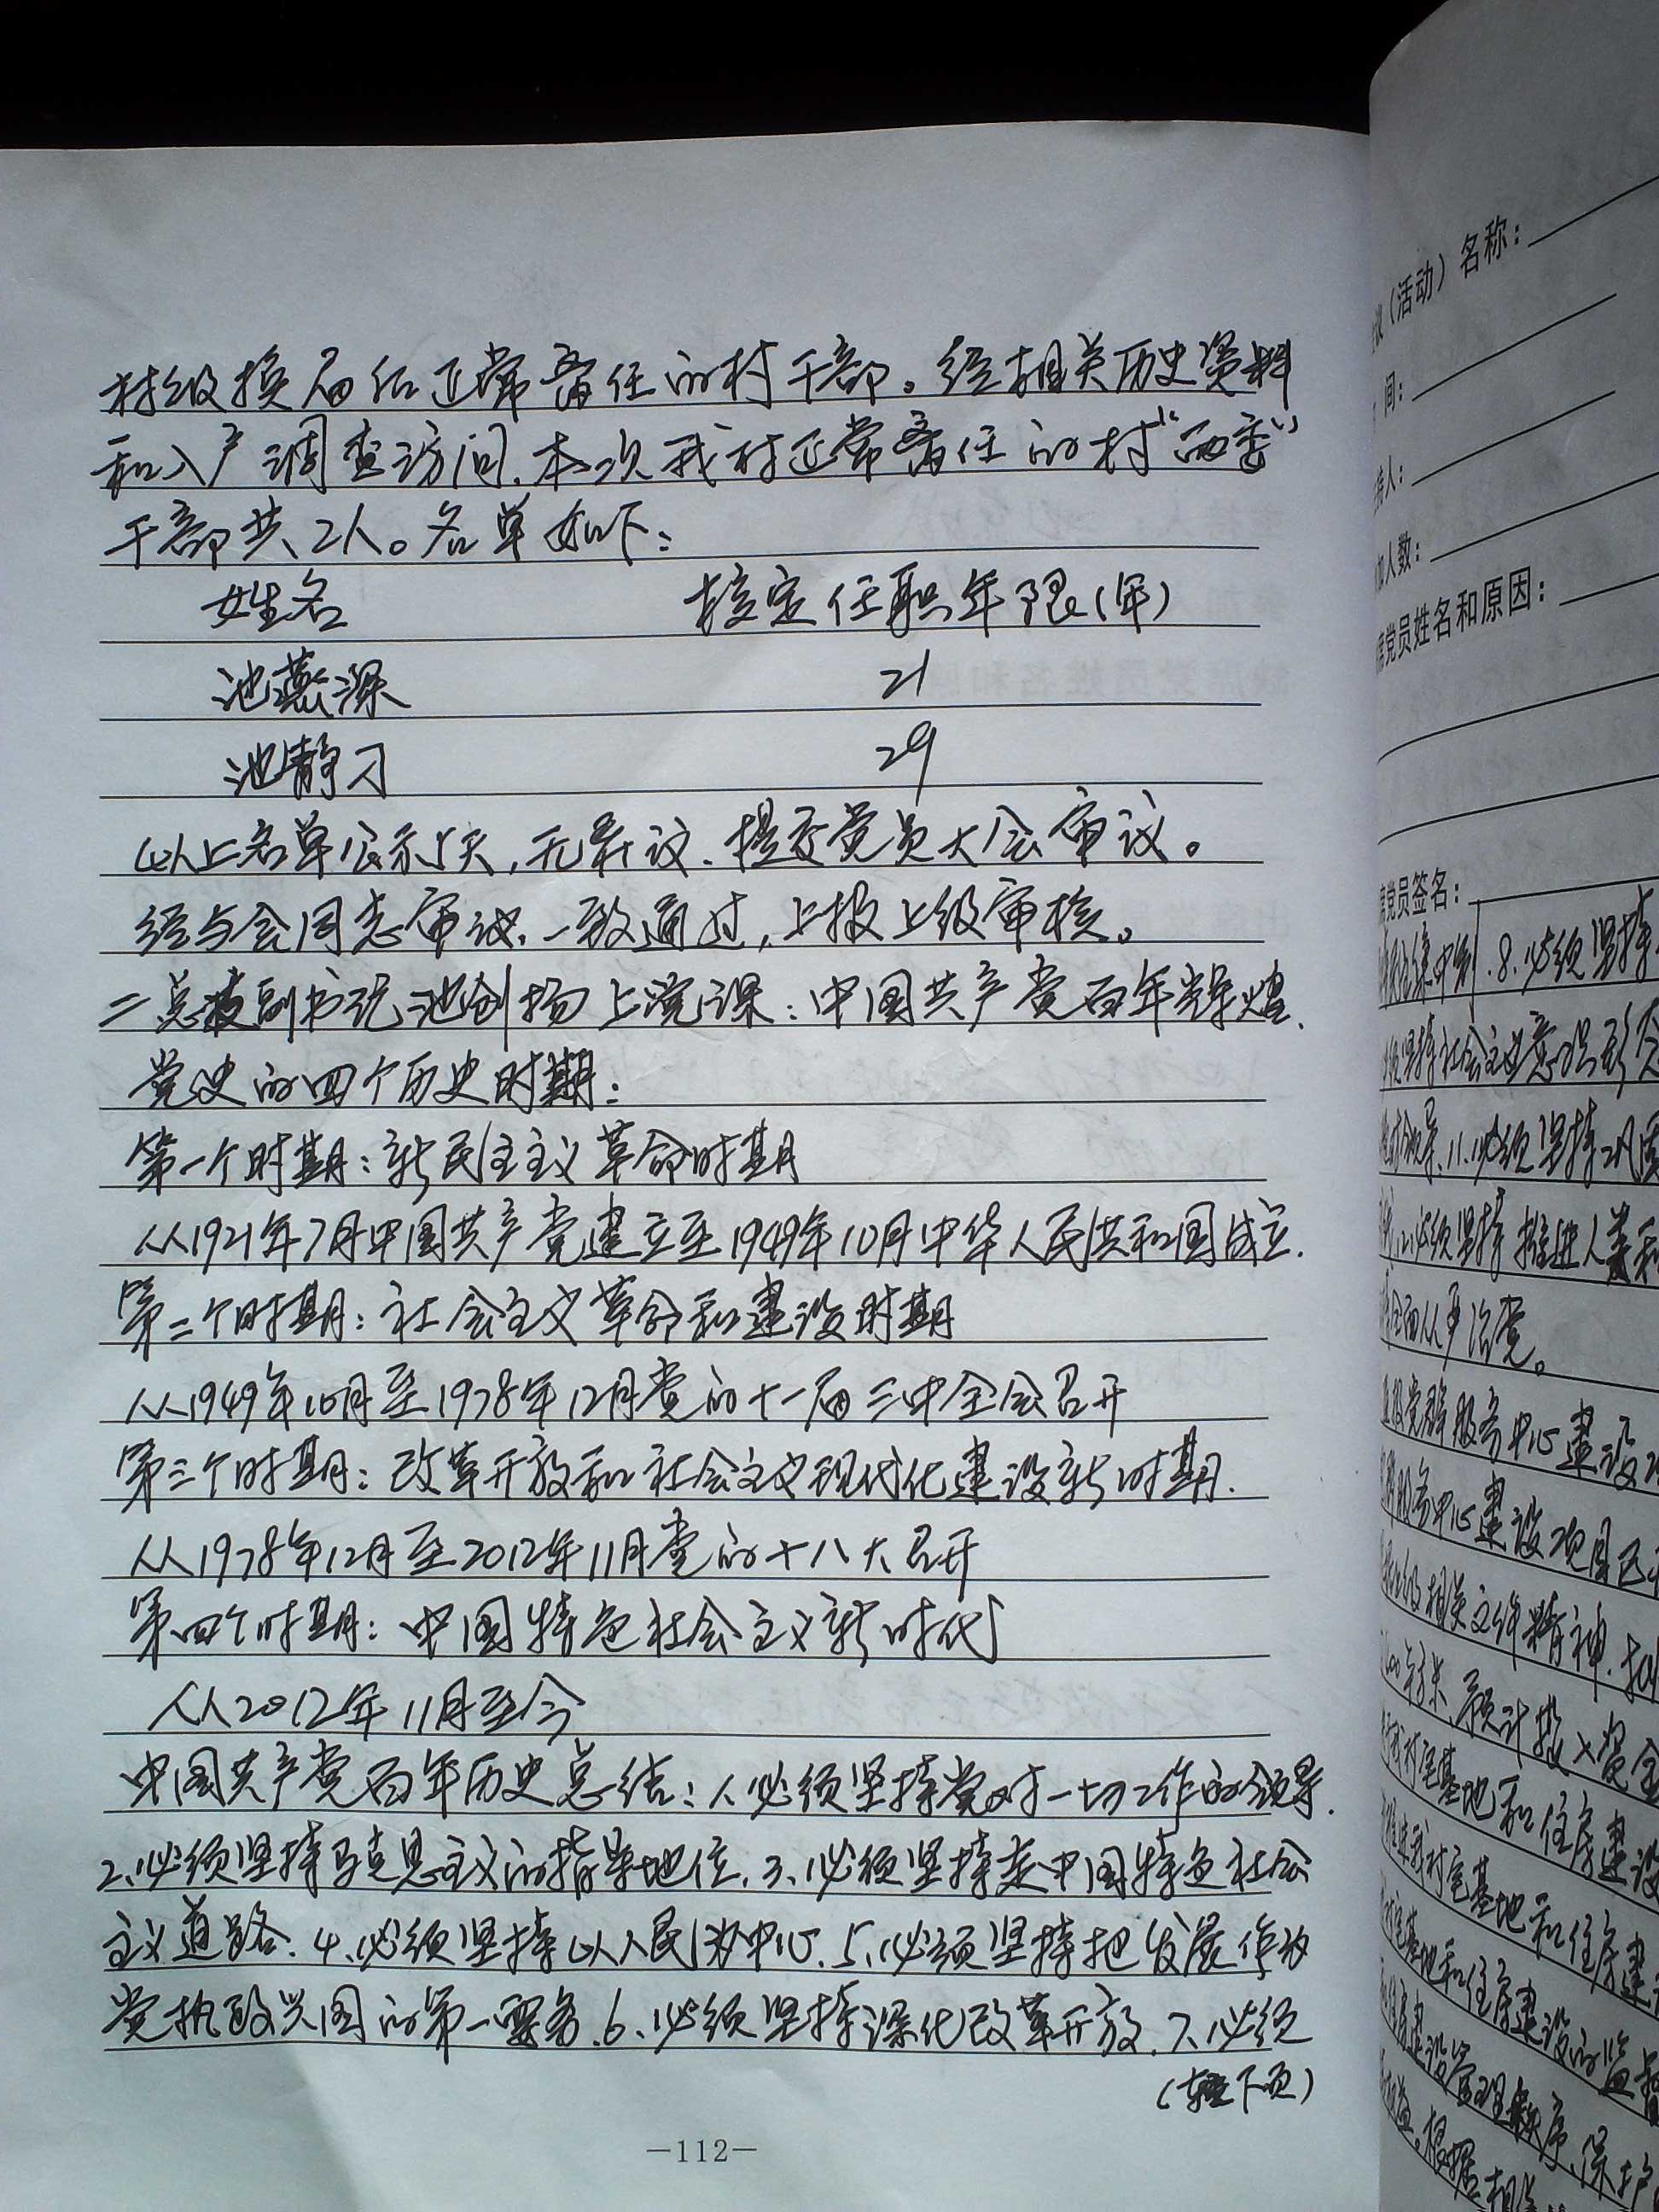 村级换届后正常离任的村干部。经相关历史资料
和入户调查访问,本次我村正常离任的村“两委”
干部共2人。名单如下:
姓名 核定任职年限(年)
池燕深 21
池静 29
以上名单公示5天,无异议,提交党员大会审议。
经与会同志审议,一致通过,上报上级审核。
二、总支副书记池创扬上党课:中国共产党百年辉煌.
党史的四个历史时期:
第一个时期:新民主主义革命时期
从1921年7月中国共产党建立至1949年10月中华人民共和国成立.
第二个时期:社会主义革命和建设时期
从1949年10月至1978年12月党的十一届三中全会召开
第三个时期:改革开放和社会主义现代化建设新时期.
从1978年12月至2012年11月党的十八大召开
第四个时期:中国特色社会主义新时代
从2012年11月至今
中国共产党百年历史总结:1.必须坚持党对一切工作的领导.
2.必须坚持马克思主义的指导地位.3.必须坚持走中国特色社会
主义道路.4.必须坚持以人民为中心.5.必须坚持把发展作为
党执政兴国的第一要务.6.必须坚持深化改革开放.7.必须
(转下页)
—112—
(活动)名称:
间:
持人:
加人数:
席党员姓名和原因:
席党员签名:
民主集中制.8.必须坚持
须坚持社会主义意识形态
领导.11.必须坚持巩固
12.必须坚持推进人类
全面从严治党。
党群服务中心建设
服务中心建设项目已
级相关文件精神.
预计投入资金
我村宅基地和住房建设
我村宅基地和住房建
宅基地和住房建设的监
住房建设管理秩序,保护
根据相